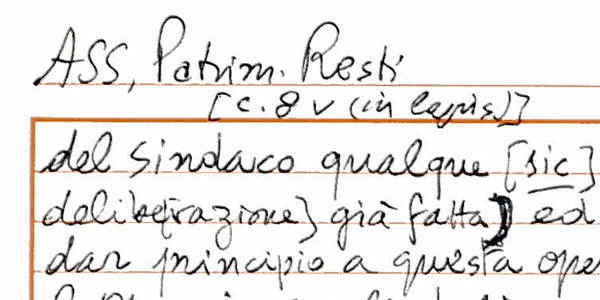 ASS, Patrim. Resti
[c. 8 v (in lapis)]
del sindaco qualque [sic]
delibe[razione] già fatta) ed
dar principio a questa ope